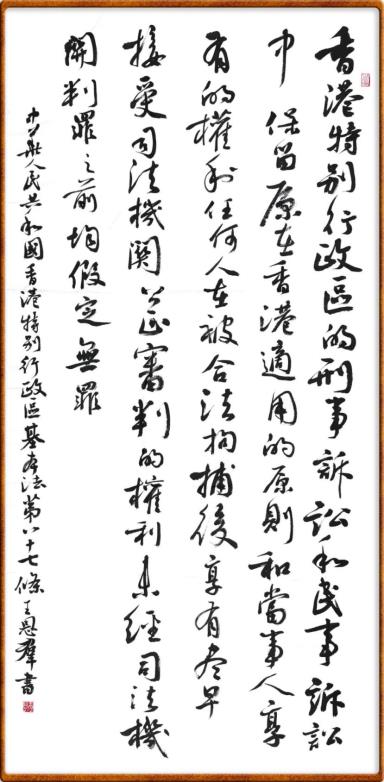 香港特別行政區的刑事訴訟和民事訴訟
中保留原在香港適用的原則和當事人享
有的權利任何人在被合法拘捕後享有尽早
接受司法機関公正審判的權利未經司法機
関判罪之前均假定無罪
中華人民共和國香港特別行政區基本法第八十七條王恩群書